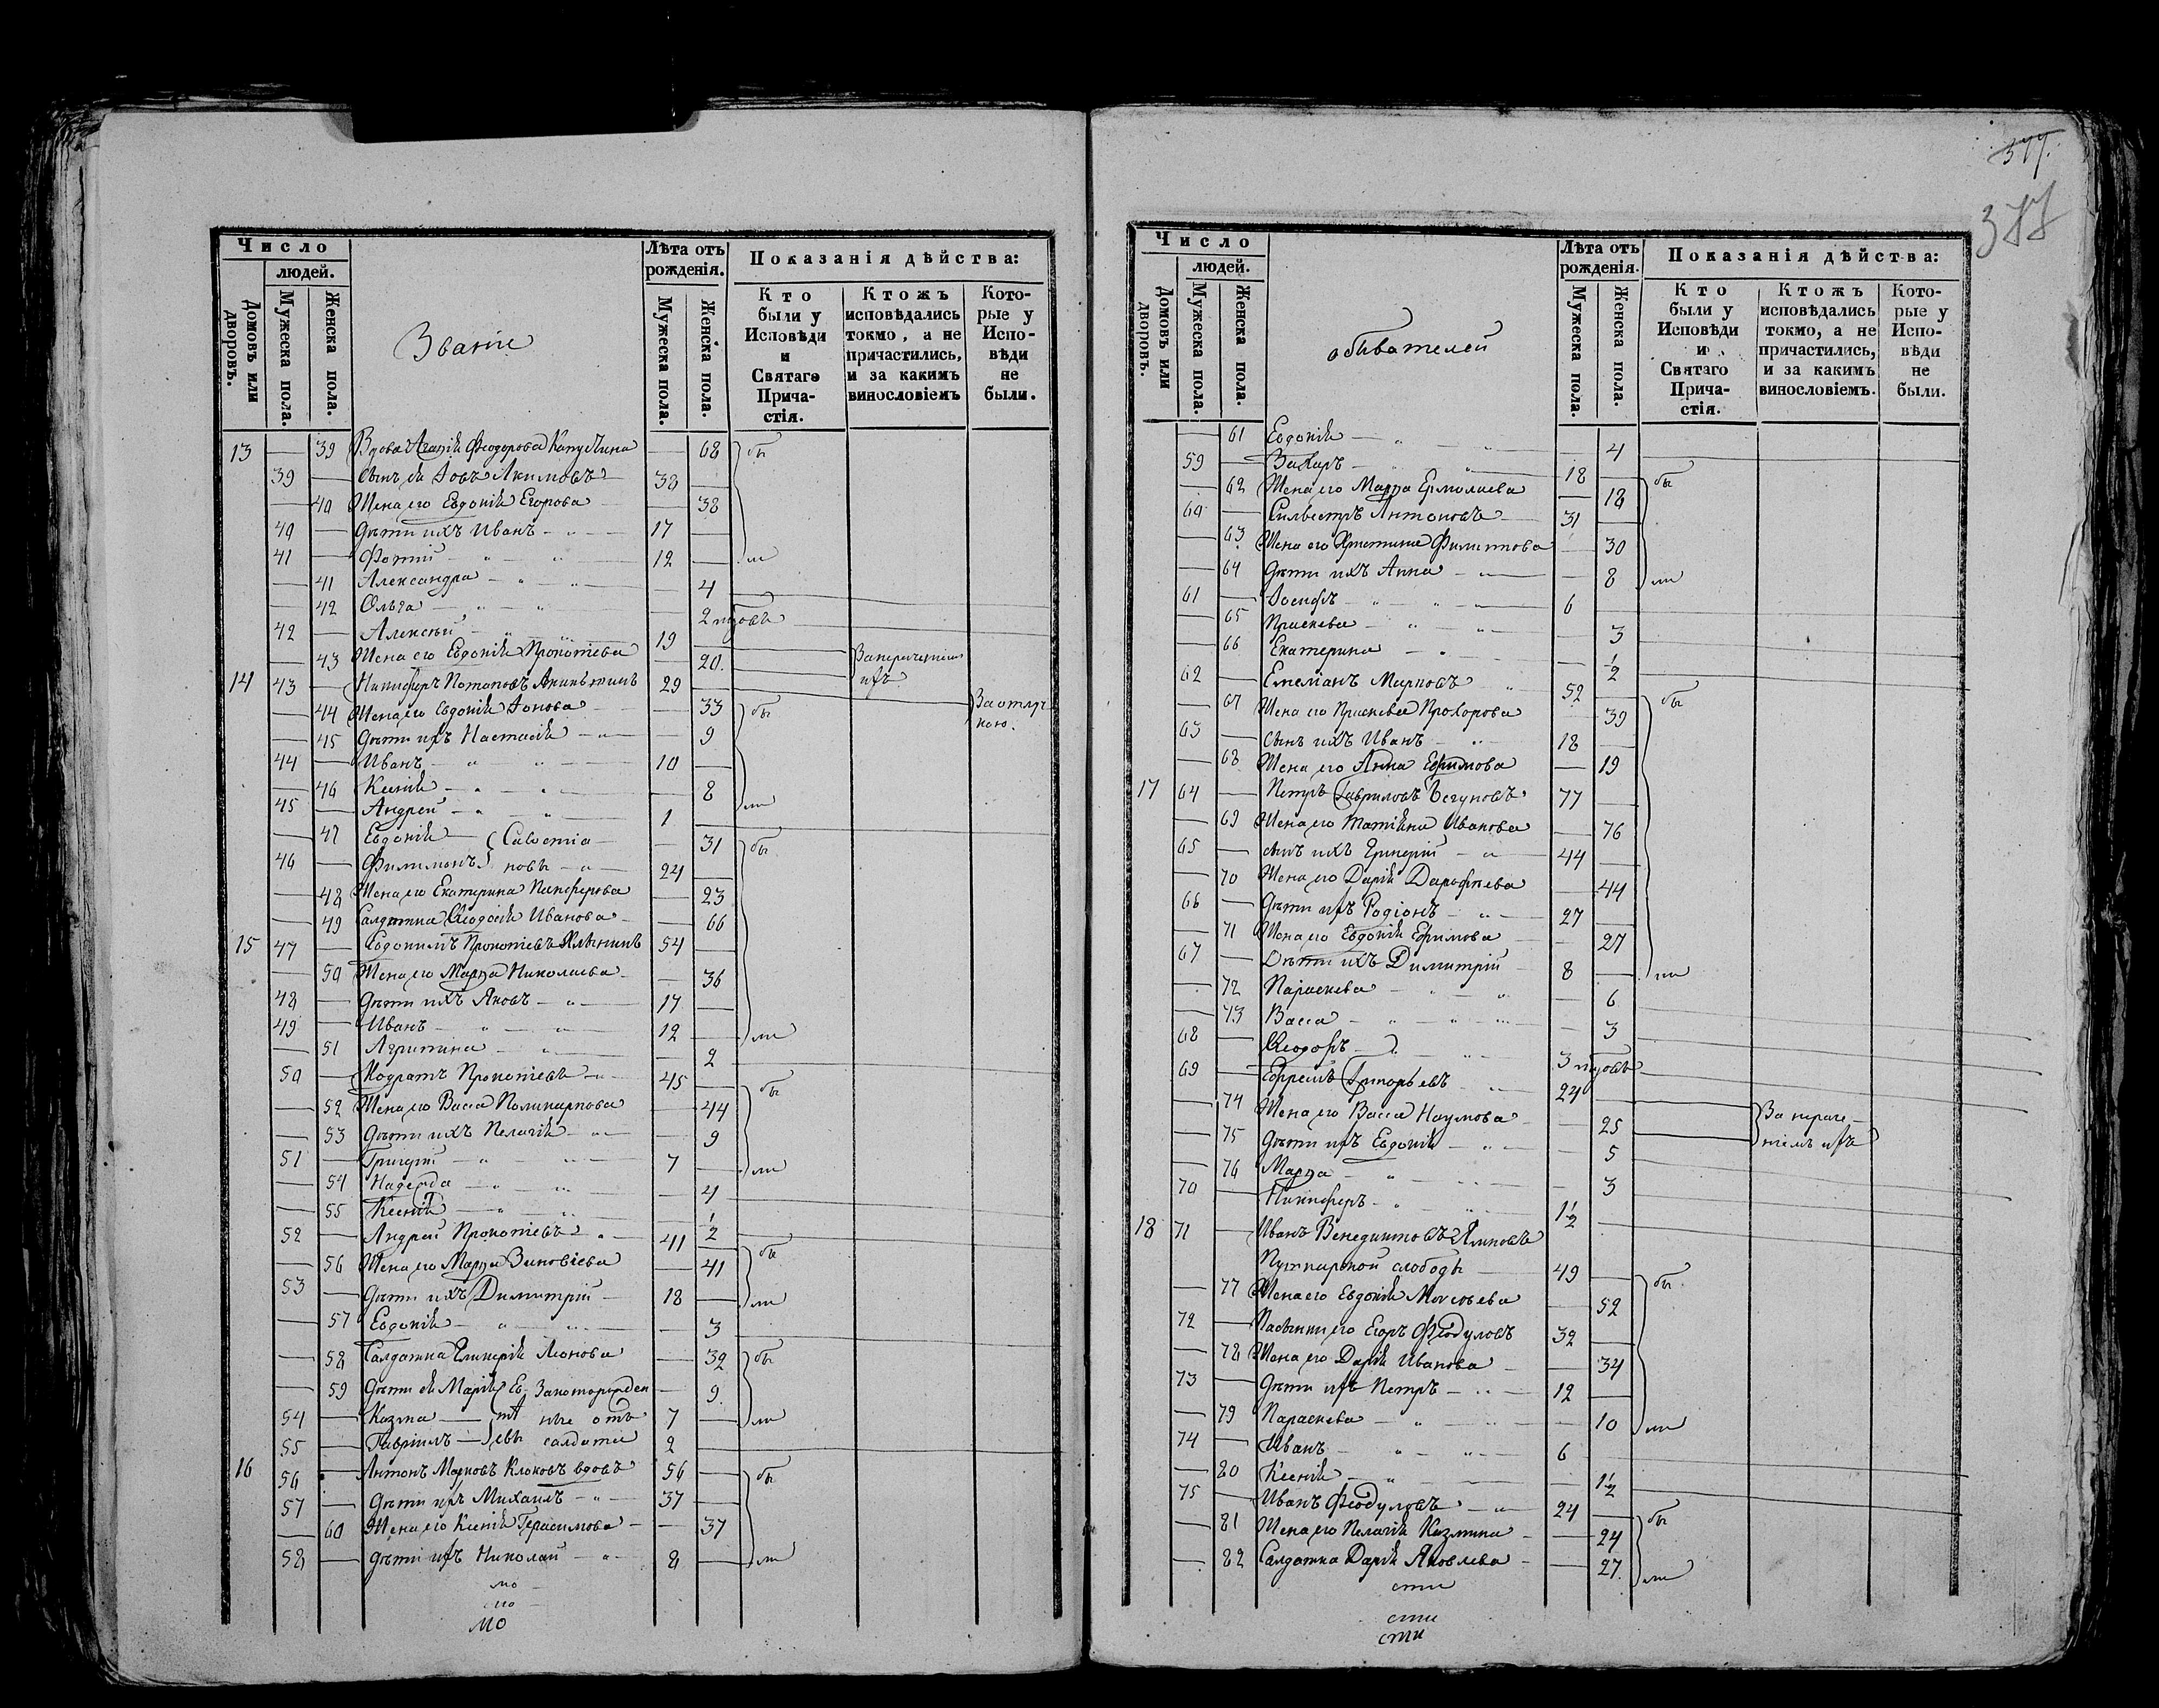 Число
людей.
Домовъ или дворовъ.
Мужеска пола.
Женска пола.
Званіе
Лѣта отъ рожденія.
Мужеска пола.
Женска пола.
Показанія дѣйства:
Кто были у Исповѣди и Святаго Прича-стія.
Ктожъ исповѣдались токмо, а не причастились, и за какимъ винословіемъ
Кото-рые у Испо-вѣди не были.
13 — 39 Вдова Агафія Феодорова Капусткина — 68 бы
39 — Сынъ ея Іовъ Акимовъ 38 —
— 40 Жена его Евдокія Егорова — 38
40 — Дѣти ихъ Иванъ 17 —
41 — Фотій 12 — ли
— 41 Александра — 4
— 42 Ольга — 2
42 — Алексѣй 19
— 43 Жена его Евдокія Прокопіева — 20
14 43 — Никифоръ Потаповъ 29 За отлуч
— 44 Жена его Евдокія Іонова — 33 бы кою.
— 45 Дѣти ихъ Настасія — 9
44 — Иванъ 10 —
— 46 Ксенія — 8 ли
45 — Андрей 1
— 47 Евдокія — 31 бы
46 — Филимонъ 24 —
— 48 Жена его Екатерина Панферова — 23
— 49 Салдатка Феодосія Иванова — 66
15 47 — Евдокимъ Прокопіевъ 54 —
— 50 Жена его Марфа Николаева — 36
48 — Дѣти ихъ Яковъ 17 —
49 — Иванъ 12 — ли
— 51 Агрипина — 2
50 — Кодратъ Прокопіевъ 45 — бы
— 52 Жена его Васса Поликарпова — 44
— 53 Дѣти ихъ Пелагія — 9
51 — Григорій 7 — ли
— 54 Надежда — 4
— 55 Ксенія — 1/2
52 — Андрей Прокопіевъ 41 — бы
— 56 Жена его Марфа Зиновіева — 41
53 — Дѣти ихъ Димитрій 18 — ли
— 57 Евдокія — 3
— 58 Салдатка Гликерія Леонова — 32 бы
— 59 Дѣти ея Марія — 9
54 — Козма 7 — ли
55 — Гавріилъ 2
16 56 — Антонъ Марковъ Клоковъ вдовъ 56 — бы
57 — Дѣти его Михаилъ 37 —
— 60 Жена его Ксенія Герасимова — 37
58 — Дѣти ихъ Николай 8 — ли
мо
мо
мо
377.
377
Число
людей.
Домовъ или дворовъ.
Мужеска пола.
Женска пола.
обывателей
Лѣта отъ рожденія.
Мужеска пола.
Женска пола.
Показанія дѣйства:
Кто были у Исповѣди и Святаго Прича-стія.
Ктожъ исповѣдались токмо, а не причастились, и за какимъ винословіемъ.
Кото-рые у Испо-вѣди не были.
— 61 Евдокія — 4
59 — Захаръ 18 — бы
— 62 Жена его Марфа Ермолаева — 18
60 — Сильвестръ Антоновъ 31 —
— 63 Жена его Христина Филиппова — 30
— 64 Дѣти ихъ Анна — 8 ли
61 — Іосифъ 6
— 65 Праскева — 3
— 66 Екатерина — 1/2
62 — Емеліанъ Марковъ 52 — бы
— 67 Жена его Праскева Прохорова — 39
63 — Сынъ ихъ Иванъ 18 —
— 68 Жена его Анна Ефимова — 19
17 64 — Петръ Гавриловъ Бегуновъ 77 —
— 69 Жена его Татіана Иванова — 76
65 — Сынъ ихъ Григорій 44 —
— 70 Жена его Дарія Дорофеева — 44
66 — Дѣти ихъ Родіонъ 27 —
— 71 Жена его Евдокія Ефимова — 27
67 — Дѣти ихъ Димитрій 8 — ли
— 72 Параскева — 6
— 73 Васса — 3
68 — Феодоръ 3
69 — Ефремъ Григорьевъ 24
— 74 Жена его Васса Наумова — 25
— 75 Дѣти ихъ Евдокія — 5
— 76 Марфа — 3
70 — Никифоръ 1 1/2
18 71 — Иванъ Венедиктовъ
Пушкарской слободы 49 — бы
— 77 Жена его Евдокія Моисеева — 52
72 — Пасынки его Егоръ Феодуловъ 32 —
— 78 Жена его Дарія Иванова — 34
73 — Дѣти ихъ Петръ 12 —
— 79 Параскева — 10 ли
74 — Иванъ 6
— 80 Ксенія — 1 1/2
75 — Иванъ Феодуловъ 24 — бы
— 81 Жена его Пелагія Козмина — 24
— 82 Салдатка Дарія Яковлева — 27 ли
сти
сти
сти